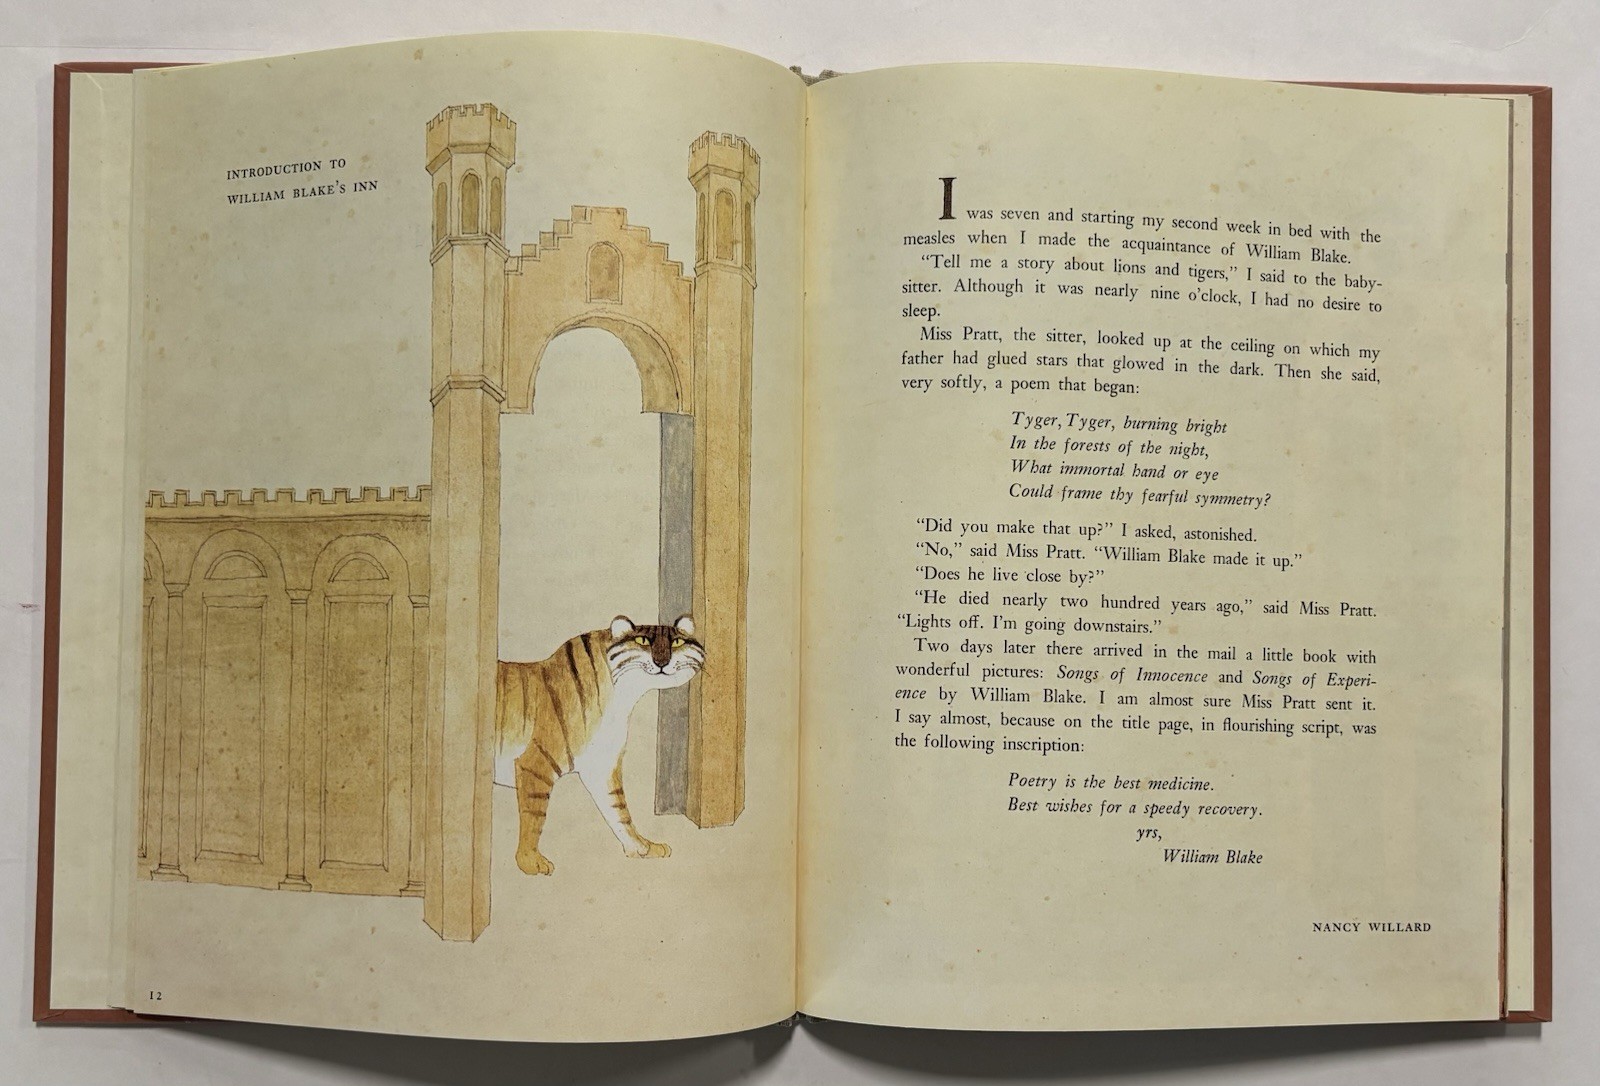 INTRODUCTION TO
WILLIAM BLAKE'S INN
12
I was seven and starting my second week in bed with the
measles when I made the acquaintance of William Blake.
"Tell me a story about lions and tigers," I said to the baby-
sitter. Although it was nearly nine o'clock, I had no desire to
sleep.
Miss Pratt, the sitter, looked up at the ceiling on which my
father had glued stars that glowed in the dark. Then she said,
very softly, a poem that began:
Tyger, Tyger, burning bright
In the forests of the night,
What immortal hand or eye
Could frame thy fearful symmetry?
"Did you make that up?" I asked, astonished.
"No," said Miss Pratt. "William Blake made it up."
"Does he live close by?"
"He died nearly two hundred years ago," said Miss Pratt.
"Lights off. I'm going downstairs."
Two days later there arrived in the mail a little book with
wonderful pictures: Songs of Innocence and Songs of Experi-
ence by William Blake. I am almost sure Miss Pratt sent it.
I say almost, because on the title page, in flourishing script, was
the following inscription:
Poetry is the best medicine.
Best wishes for a speedy recovery.
yrs,
William Blake
NANCY WILLARD